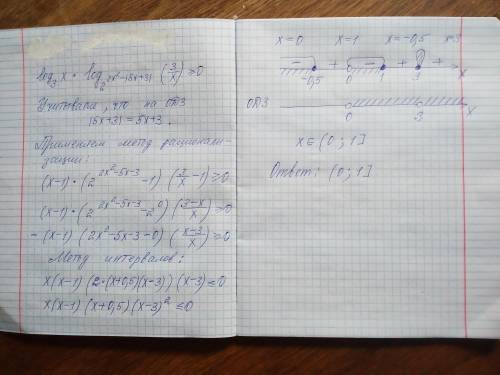 log₃ x · log₂ 2x²-|5x+3| (3/x) ≥ 0
Учитывали, что на ОДЗ
|5x+3| = 5x+3.
Применяем метод рационали-
зации:
(x-1)·(2^(2x²-5x-3) -1)(3/x -1) ≥ 0
(x-1)·(2^(2x²-5x-3) -2⁰)((3-x)/x) ≥ 0
-(x-1)(2x²-5x-3-0)((x-3)/x) ≥ 0
Метод интервалов:
x(x-1)(2·(x+0,5)(x-3))(x-3) ≤ 0
x(x-1)(x+0,5)(x-3)² ≤ 0
x=0 x=1 x=-0,5 x=3
- + - + +
-0,5 0 1 3 x
ОДЗ 0 3 x
x∈(0;1]
Ответ: (0;1]